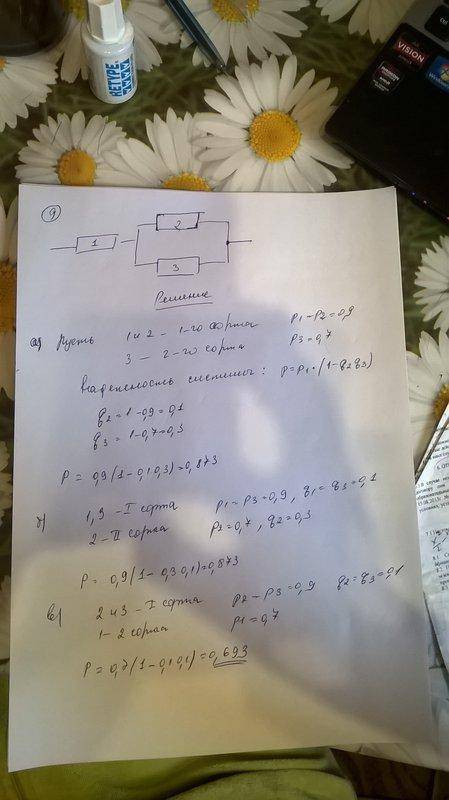 9
1
2
3
Решение
а) Пусть 1 и 2 - 1-го сорта p1 - p2 = 0,9
3 - 2-го сорта p3 = 0,7
Надежность системы: p = p1 · (1 - q2q3)
q2 = 1 - 0,9 = 0,1
q3 = 1 - 0,7 = 0,3
P = 0,9 (1 - 0,1 0,3) = 0,873
б) 1,3 - I сорта p1 = p3 = 0,9, q1 = q3 = 0,1
2 - II сорта p2 = 0,7, q2 = 0,3
P = 0,9 (1 - 0,3 0,1) = 0,873
в) 2 и 3 - I сорта p2 - p3 = 0,9 q2 = q3 = 0,1
1 - 2 сорта p1 = 0,7
P = 0,7 (1 - 0,1 0,1) = 0,693
VISION